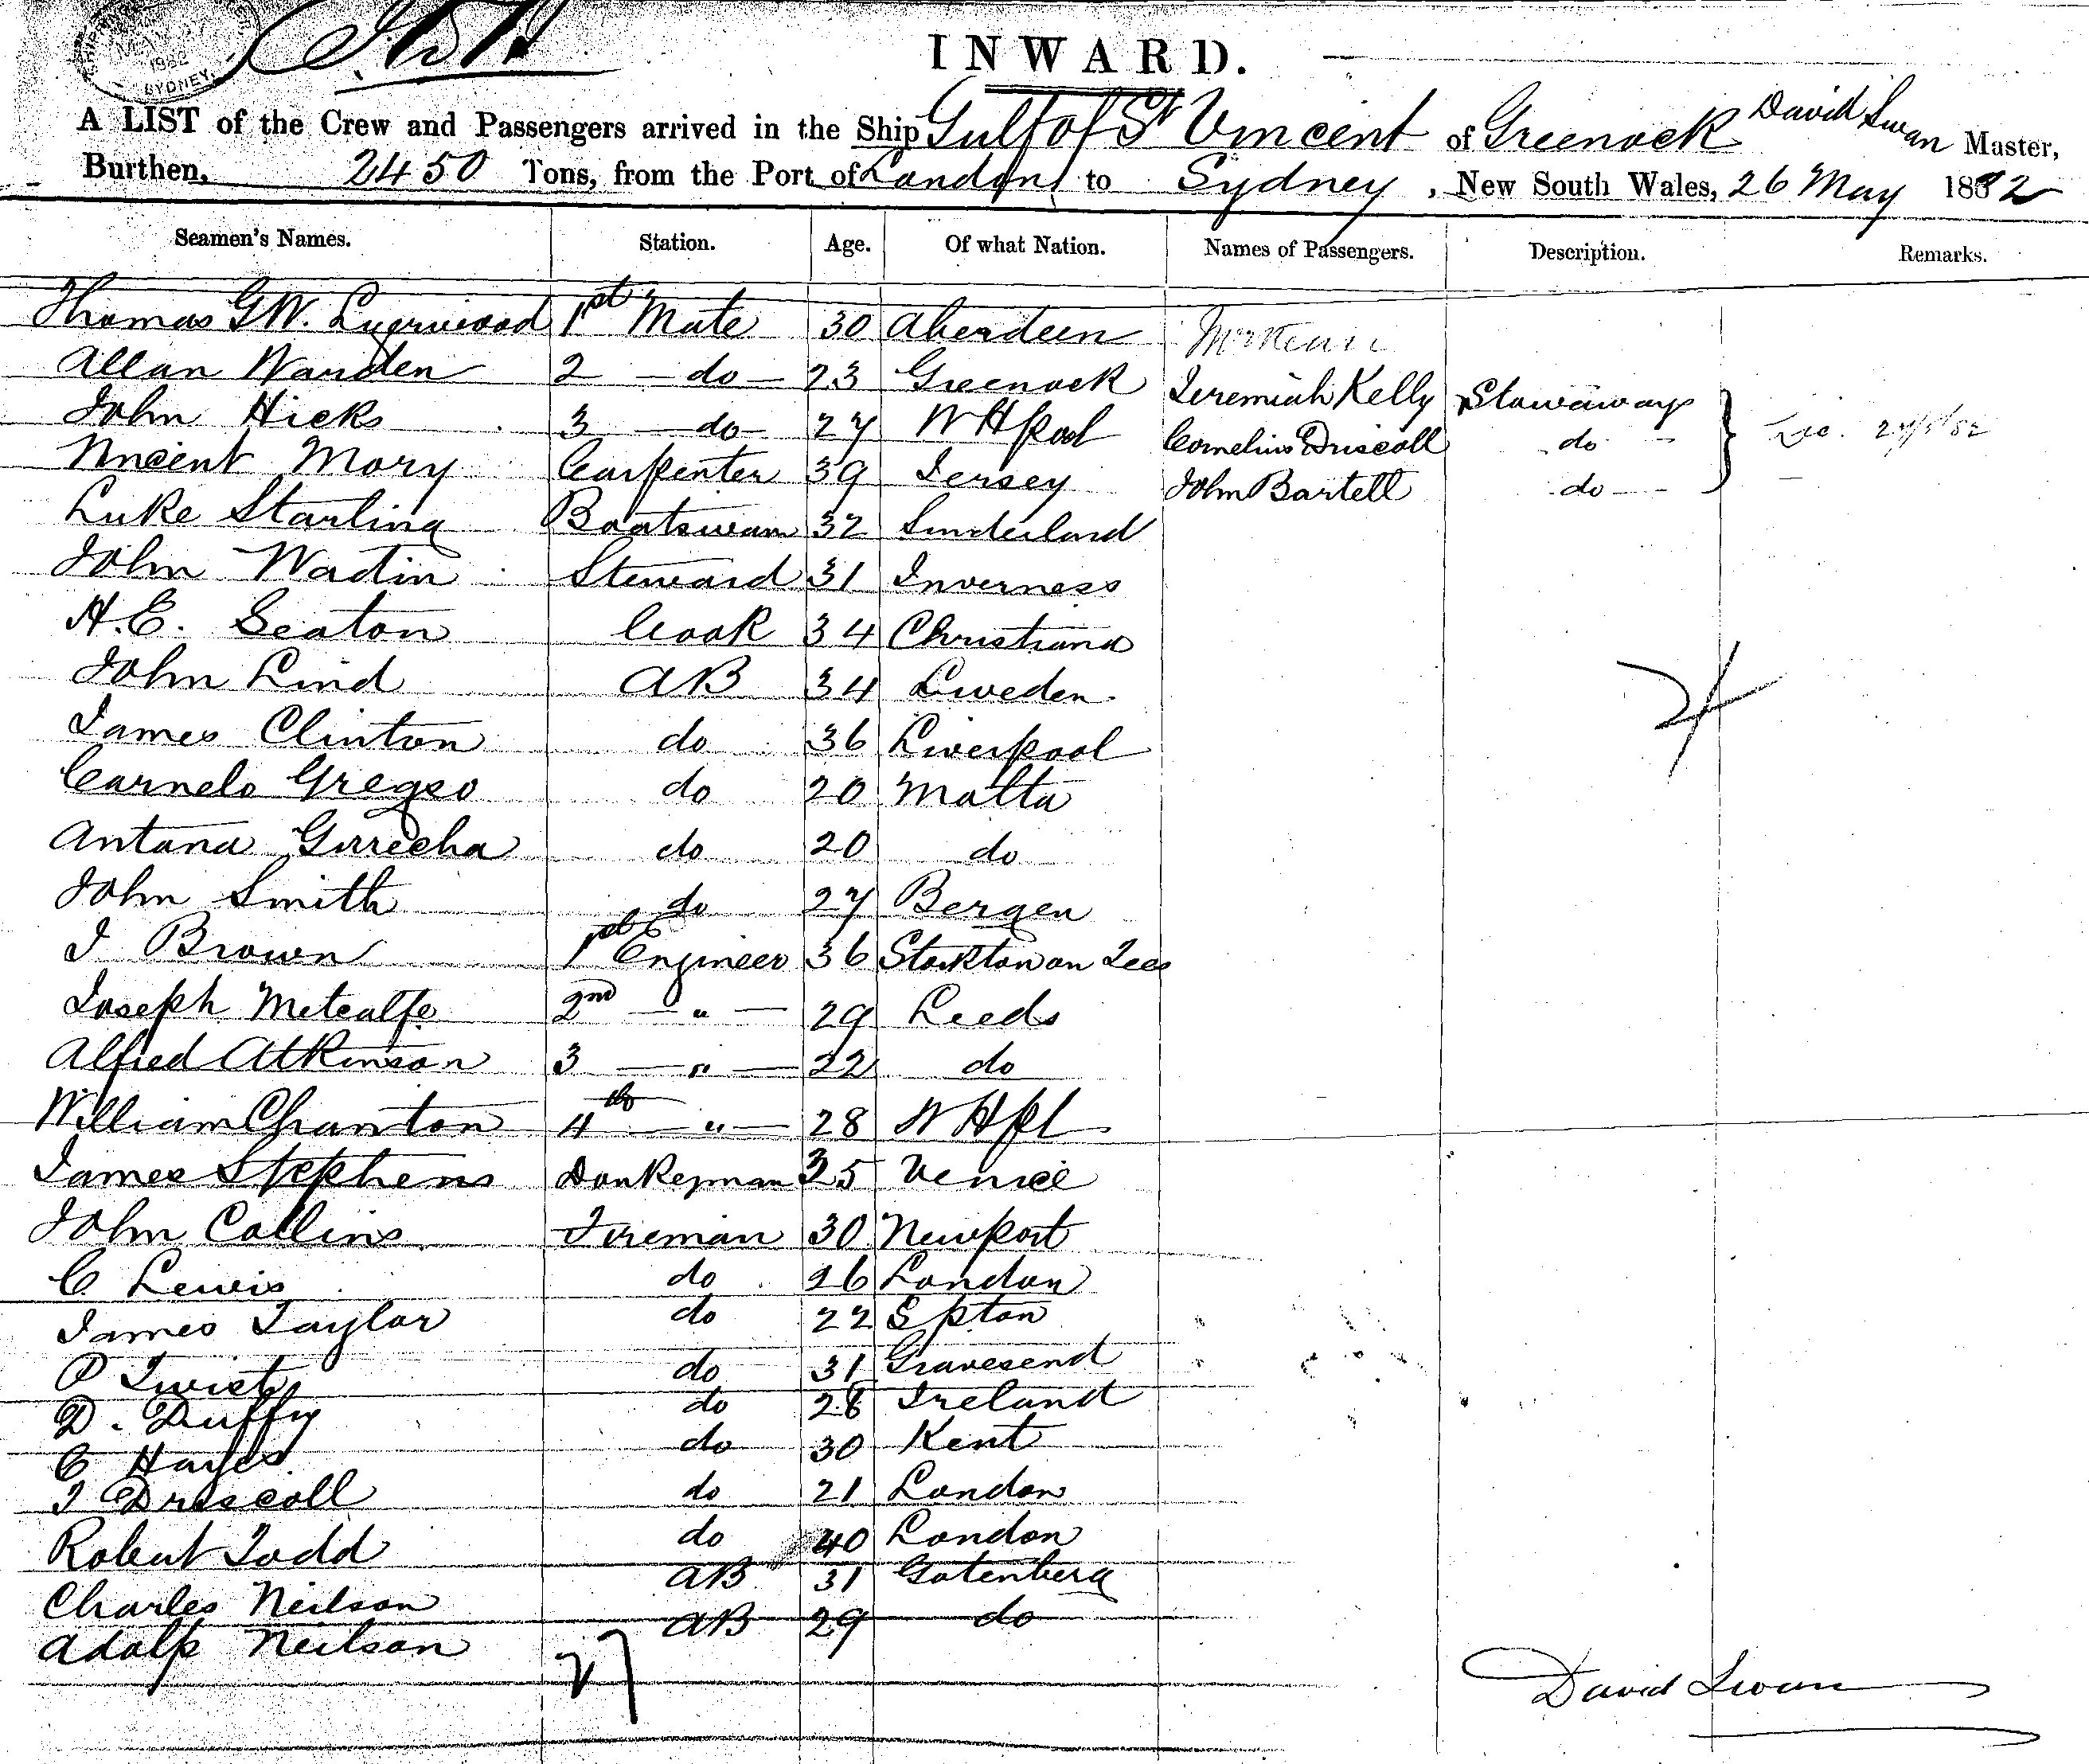 SYDNEY
INWARD.
A LIST of the Crew and Passengers arrived in the Ship Gulf of St Vincent of Greenock David Swan Master,
Burthen, 2450 Tons, from the Port of London to Sydney, New South Wales, 26 May 1882
Seamen's Names. Station. Age. Of what Nation. Names of Passengers. Description. Remarks.
Thomas GW. 1st Mate 30 Aberdeen
Allan Warden 2 - do - 23 Greenock Jeremiah Kelly Stowaway
John Hicks 3 - do - 27 W Hpool Cornelius Driscoll do
Vincent Mory Carpenter 39 Jersey John Bartell do
Luke Starling Boatswain 32 Sunderland
John Wadin Steward 31 Inverness
H.E. Seaton Cook 34 Christiana
John Lind AB 34 Sweden
James Clinton do 36 Liverpool
Carnelo Gregso do 20 Malta
Antana Girrecha do 20 do
John Smith do 27 Bergen
J Brown 1st Engineer 36 Stockton on Tees
Joseph Metcalfe 2nd — " — 29 Leeds
Alfred Atkinson 3 — " — 22 do
William Chanton 4th — " — 28 W Hpl
James Stephens Donkeyman 35 Venice
John Collins Fireman 30 Newport
C Lewis do 26 London
James Taylor do 22 S pton
P Twist do 31 Gravesend
D. Duffy do 28 Ireland
C Hayes do 30 Kent
J Driscoll do 21 London
Robert Todd do 40 London
Charles Neilson AB 31 Gotenberg
Adolp Neilson AB 29 do
27
David Swan